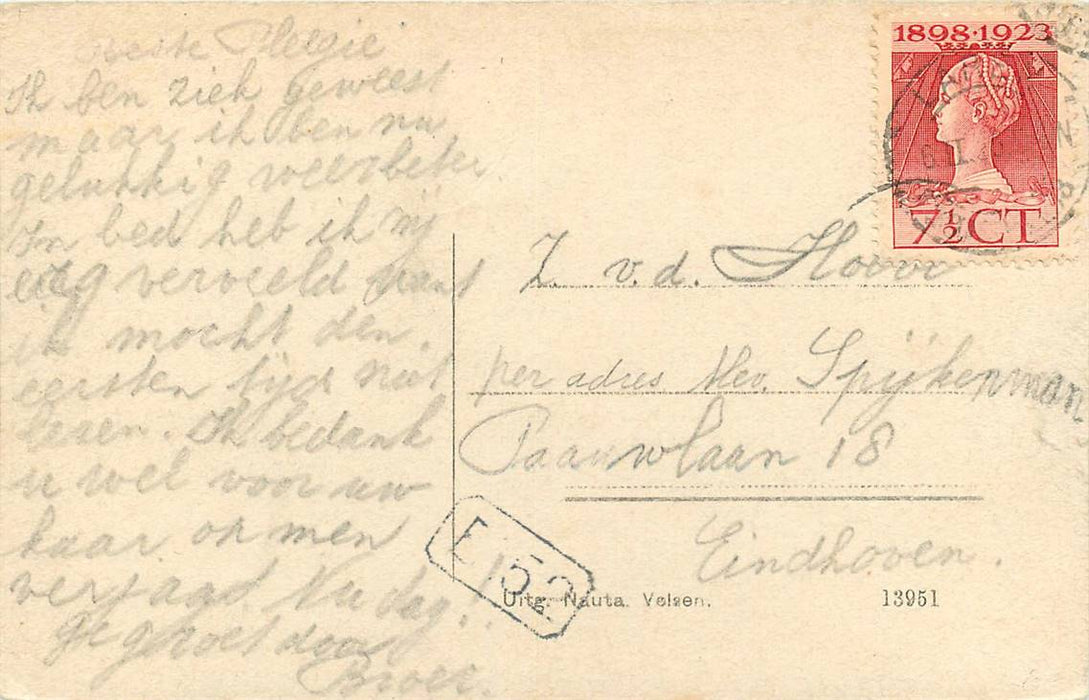 Beste
Ik ben ziek geweest
maar ik ben nu
gelukkig weer beter.
In bed heb ik mij
erg verveeld want
ik mocht den
eersten tijd niet
lezen. Ik bedank
u wel voor uw
kaart op men
verjaard. Nu dag!!
gegroet door
Broer.
1898·1923
7½ CT
Z. v. d. Hoeve
per adres Mev. Spijkerman
Paauwlaan 18
Eindhoven.
E 52
Uitg. Nauta. Velsen.
13951